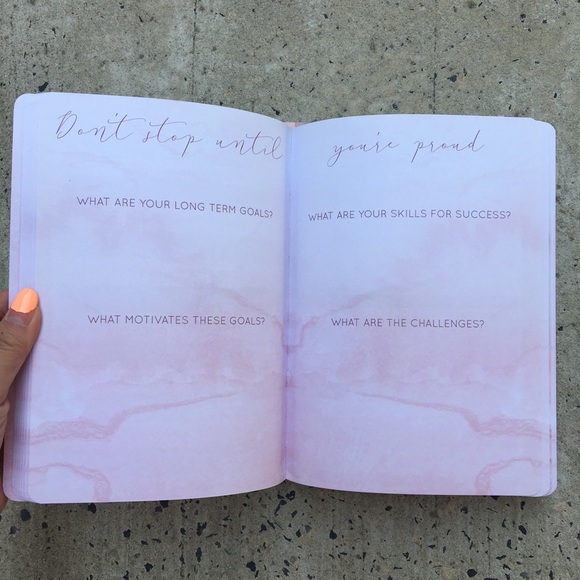 Don't stop until
WHAT ARE YOUR LONG TERM GOALS?
WHAT MOTIVATES THESE GOALS?
you're proud
WHAT ARE YOUR SKILLS FOR SUCCESS?
WHAT ARE THE CHALLENGES?